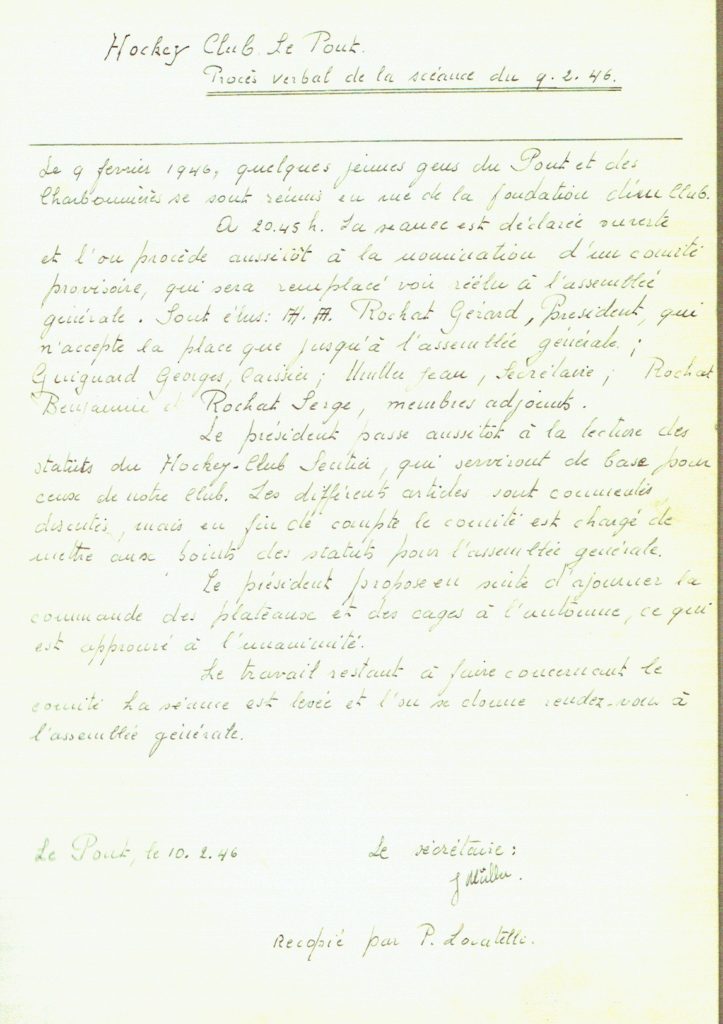 Hockey Club. Le Pont.
Procès verbal de la scéance du 9.2.46.
Le 9 fevrier 1946, quelques jeunes gens du Pont et des
Charbonnières se sont réunis en vue de la fondation d'un Club.
A 20.45 h. La séance est déclarée ouverte
et l'on procède aussitôt à la nomination d'un comité
provisoire, qui sera remplacé voir réélu à l'assemblée
générale. Sont élus: M.M. Rochat Gérard, President, qui
n'accepte la place que jusqu'à l'assemblée générale;
Guignard Georges, Caissier; Muller Jean, Secrétaire; Rochat
Benjamin et Rochat Serge, membres adjoints.
Le président passe aussitôt à la lecture des
statuts du Hockey-Club Sentier, qui serviront de base pour
ceux de notre Club. Les différents articles sont commentés,
discutés, mais en fin de compte le comité est chargé de
mettre aux points des statuts pour l'assemblée générale.
Le président propose en suite d'ajourner la
commande des plateaux et des cages à l'automne, ce qui
est approuvé à l'unanimité.
Le travail restant à faire concernant le
comité La séance est levée et l'on se donne rendez-vous à
l'assemblée générale.
Le Pont, le 10.2.46
Le secrétaire:
J Müller.
Recopié par P. Locatelli.